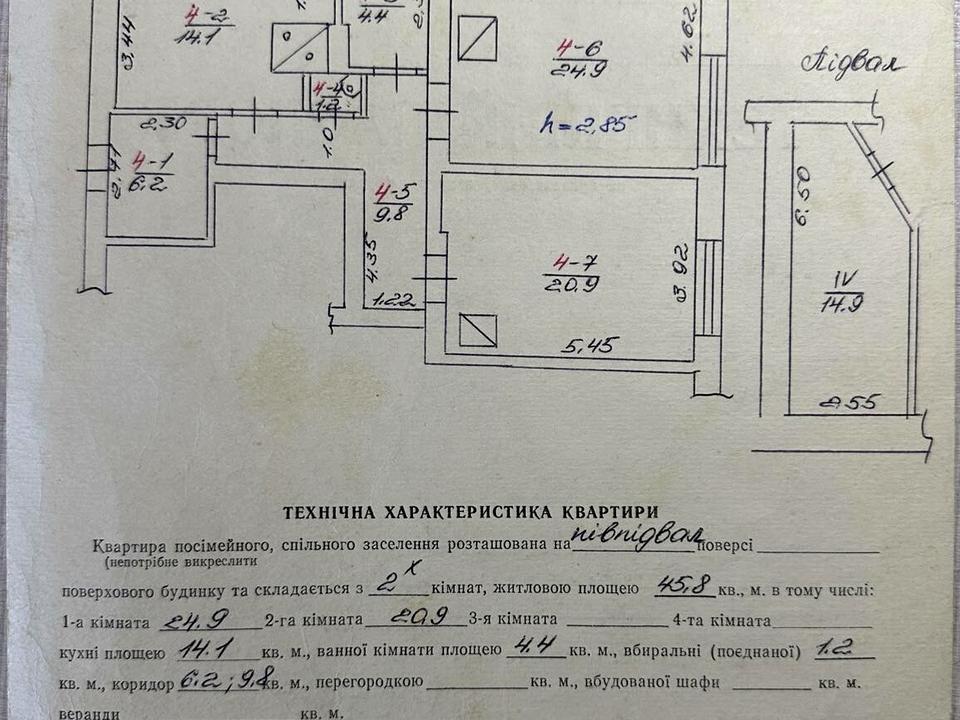 4-2
14.1
3.44
4.4
4-6
24.9
4.62
Підвал
1.2
2.30
1.0
h=2,85
4-1
6.2
4-5
9.8
6.50
4.35
4-7
20.9
3.92
IV
14.9
1.22
5,45
2.55
ТЕХНІЧНА ХАРАКТЕРИСТИКА КВАРТИРИ
Квартира посімейного, спільного заселення розташована на півпідвал поверсі
(непотрібне викреслити
поверхового будинку та складається з 2х кімнат, житловою площею 45,8 кв., м. в тому числі:
1-а кімната 24.9 2-га кімната 20,9 3-я кімната 4-та кімната
кухні площею 14.1 кв. м., ванної кімнати площею 4.4 кв. м., вбиральні (поєднаної) 1.2
кв. м., коридор 6.2; 9.8 кв. м., перегородкою кв. м., вбудованої шафи кв. м.
веранди кв. м.